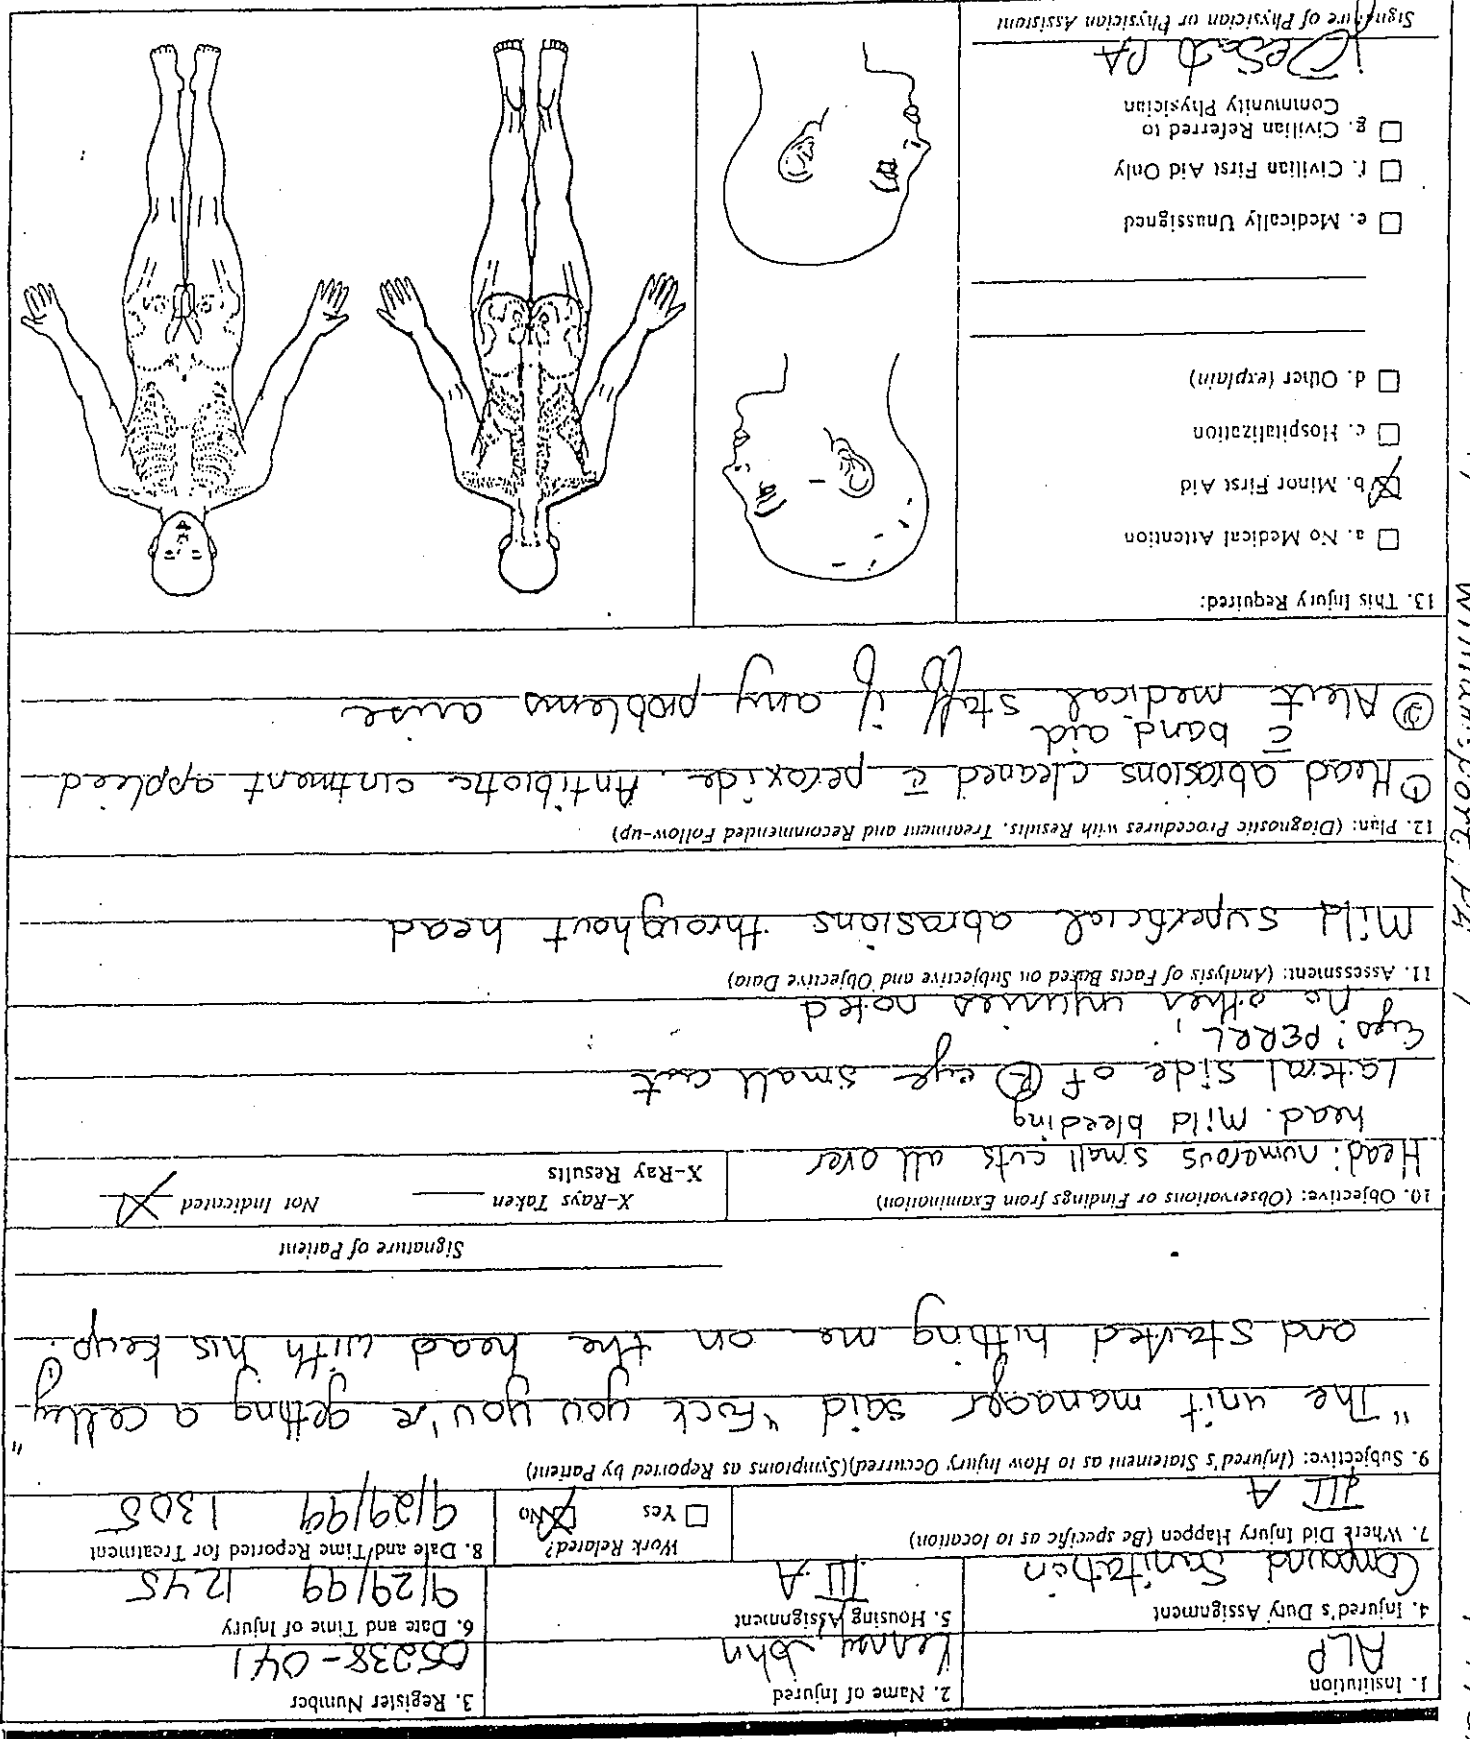 1. Institution
ALP
2. Name of Injured
Kenney, John
3. Register Number
05238-041
4. Injured's Duty Assignment
Compound Sanitation
5. Housing Assignment
III A
6. Date and Time of Injury
9/29/99 1245
7. Where Did Injury Happen (Be specific as to location)
III A
Work Related?
Yes No
8. Date and Time Reported for Treatment
9/29/99 1305
9. Subjective: (Injured's Statement as to How Injury Occurred)(Symptoms as Reported by Patient)
"The unit manager said "Fuck you you're getting a celley"
and started hitting me on the head with his keys.
Signature of Patient
10. Objective: (Observations or Findings from Examination)
X-Rays Taken
Not Indicated X
X-Ray Results
Head: numerous small cuts all over
head. Mild bleeding
Lateral side of (R) eye small cut
Eyes: PERRL;
no other injuries noted
11. Assessment: (Analysis of Facts Based on Subjective and Objective Data)
Mild superficial abrasions throughout head
12. Plan: (Diagnostic Procedures with Results, Treatment and Recommended Follow-up)
① Head abrasions cleaned c̄ peroxide. Antibiotic ointment applied
c̄ band aid
② Alert medical staff if any problems arise
13. This Injury Required:
a. No Medical Attention
b. Minor First Aid
c. Hospitalization
d. Other (explain)
e. Medically Unassigned
f. Civilian First Aid Only
g. Civilian Referred to
Community Physician
PA
Signature of Physician or Physician Assistant